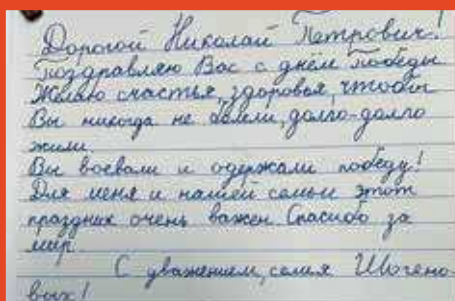 Дорогой Николай Петрович!
Поздравляю Вас с днём Победы
Желаю счастья, здоровья, чтобы
Вы никогда не болели, долго-долго
жили.
Вы воевали и одержали победу!
Для меня и нашей семьи этот
праздник очень важен. Спасибо за
мир.
С уважением, семья Шогено-
вых!